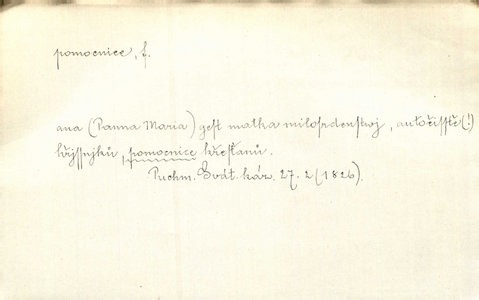 pomocnice, f.
ana (Panna Maria) gest matka milosrdenstwj, autočisstě (!)
hřjssnjků, pomocnice křestanů.
Puchm. Svát. káz. 27. 2 (1826).